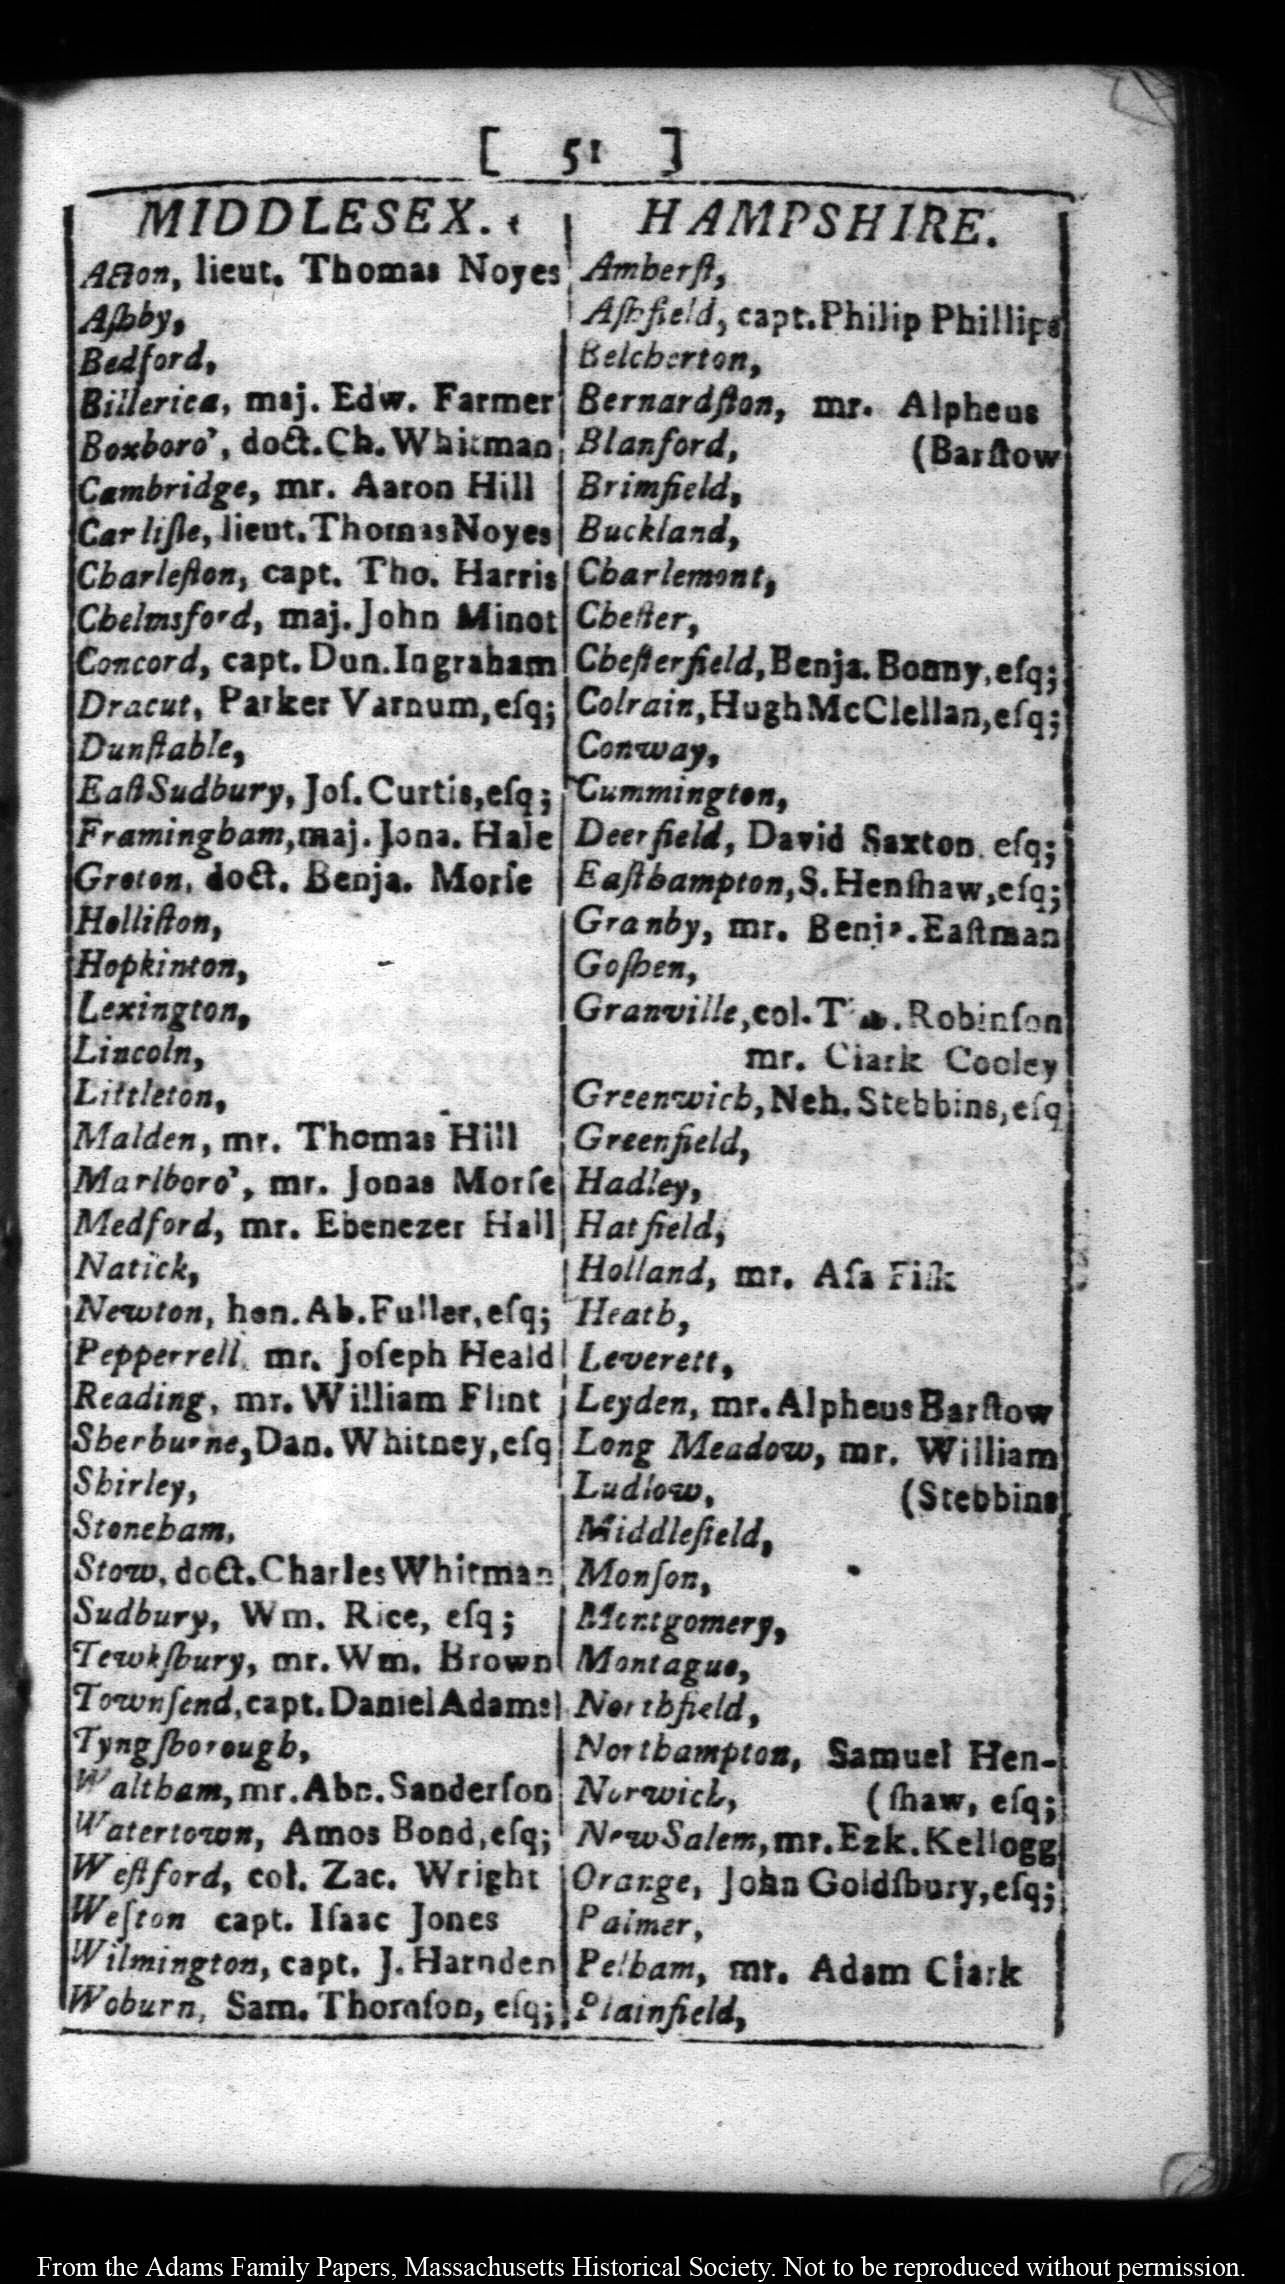 [ 51 ]
MIDDLESEX.
Acton, lieut. Thomas Noyes
Aſhby,
Bedford,
Billerica, maj. Edw. Farmer
Boxboro', doct. Ch. Whitman
Cambridge, mr. Aaron Hill
Carliſle, lieut. Thomas Noyes
Charleſton, capt. Tho. Harris
Chelmsford, maj. John Minot
Concord, capt. Dun. Ingraham
Dracut, Parker Varnum, eſq;
Dunſtable,
Eaſt Sudbury, Joſ. Curtis, eſq;
Framingham, maj. Jona. Hale
Groton, doct. Benja. Morſe
Holliſton,
Hopkinton,
Lexington,
Lincoln,
Littleton,
Malden, mr. Thomas Hill
Marlboro', mr. Jonas Morſe
Medford, mr. Ebenezer Hall
Natick,
Newton, hon. Ab. Fuller, eſq;
Pepperrell, mr. Joſeph Heald
Reading, mr. William Flint
Sherburne, Dan. Whitney, eſq
Shirley,
Stoneham,
Stow, doct. Charles Whitman
Sudbury, Wm. Rice, eſq;
Tewkſbury, mr. Wm. Brown
Townſend, capt. Daniel Adams
Tyngſborough,
Waltham, mr. Abn. Sanderſon
Watertown, Amos Bond, eſq;
Weſtford, col. Zac. Wright
Weſton capt. Iſaac Jones
Wilmington, capt. J. Harnden
Woburn, Sam. Thomſon, eſq;
HAMPSHIRE.
Amherſt,
Aſhfield, capt. Philip Phillips
Belcherton,
Bernardſton, mr. Alpheus
Blanford, (Barſtow
Brimfield,
Buckland,
Charlemont,
Cheſter,
Cheſterfield, Benja. Bonny, eſq;
Colrain, Hugh McClellan, eſq;
Conway,
Cummington,
Deerfield, David Saxton, eſq;
Eaſthampton, S. Henſhaw, eſq;
Granby, mr. Benja. Eaſtman
Goſhen,
Granville, col. Robinſon
mr. Clark Cooley
Greenwich, Neh. Stebbins, eſq
Greenfield,
Hadley,
Hatfield,
Holland, mr. Aſa Fiſk
Heath,
Leverett,
Leyden, mr. Alpheus Barſtow
Long Meadow, mr. William
Ludlow, (Stebbins
Middlefield,
Monſon,
Montgomery,
Montague,
Northfield,
Northampton, Samuel Hen-
Norwich, (ſhaw, eſq;
New Salem, mr. Ezk. Kellogg
Orange, John Goldſbury, eſq;
Palmer,
Pelham, mr. Adam Clark
Plainfield,
From the Adams Family Papers, Massachusetts Historical Society. Not to be reproduced without permission.